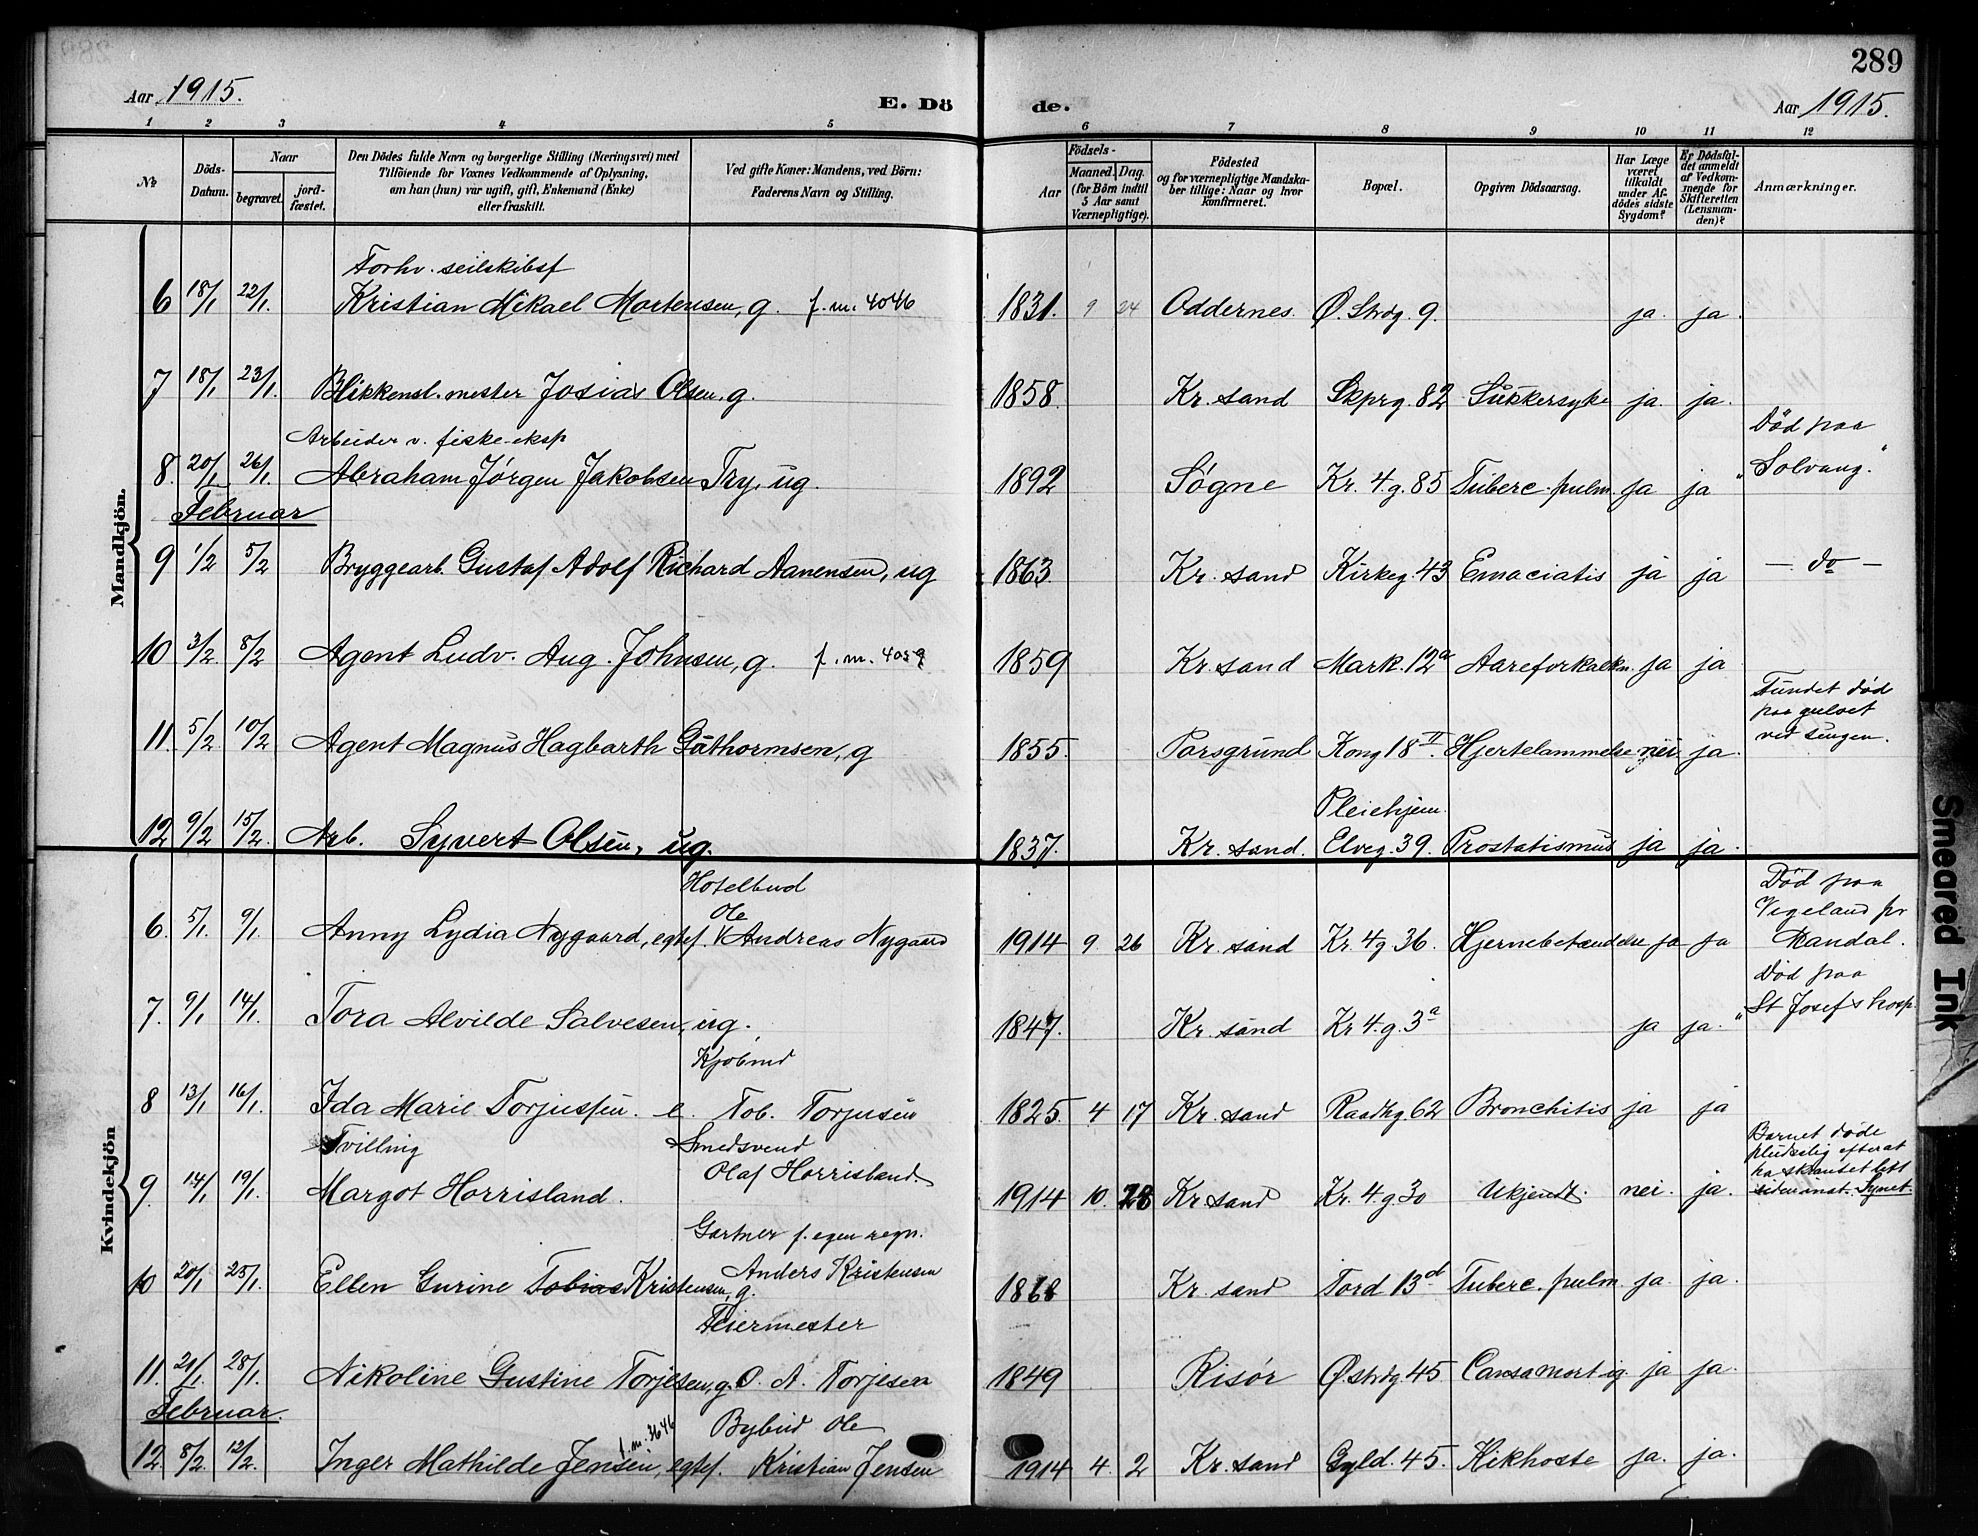 289
Aar 1915.
E. Dö de.
Aar 1915.
1 2 3 4 5 6 7 8 9 10 11 12
№
Döds-Datum.
Naar
begravet.
jord-fæstet.
Den Dödes fulde Navn og borgerlige Stilling (Næringsvei) med
Tilföiende for Voxnes Vedkommende af Oplysning,
om han (hun) var ugift, gift, Enkemand (Enke)
eller fraskilt.
Ved gifte Koner: Mandens, ved Börn:
Faderens Navn og Stilling.
Födsels-
Aar
Maaned. Dag.
(for Börn indtil
5 Aar samt
Værnepligtige).
Födested
og for værnepligtige Mandska-
ber tillige: Naar og hvor
konfirmeret.
Bopæl.
Opgiven Dödsaarsag.
Har Læge
været
tilkaldt
under Af-
dödes sidste
Sygdom?
Er Dödsfal-
det anmeldt
af Vedkom-
mende for
Skifteretten
(Lensman-
den)?
Anmærkninger.
Mandkjön.
Forhv. seilskibsf
6 18/1 22/1. Kristian Mikael Mortensen, g. f. m. 4046 1831. 9 24 Oddernes. Ø. Strdg. 9. ja. ja.
7 18/1 23/1. Blikkensl. mester Josias Olsen. g. 1858. Kr. sand Skprg. 82 Sukkersyke ja. ja.
Arbeider v. fiske-eksp
Død paa
8. 20/1 26/1. Abraham Jørgen Jakobsen Try, ug. 1892 Søgne Kr. 4. g. 85 Tuberc. pulm. ja ja "Solvang."
Februar
9 1/2 5/2 Bryggearb. Gustaf Adolf Richard Aanensen, ug 1863 Kr. sand Kirkeg. 43 Emaciatis ja ja — do —
10 3/2. 8/2 Agent Ludv. Aug. Johnsen, g. f. m. 4059 1859 Kr. sand Mark. 12a Aareforkalkn. ja ja
Fundet død
paa gulvet
11. 5/2 10/2 Agent Magnus Hagbarth Guthormsen, g 1855. Porsgrund Kong 18 II. Hjertelammelse nei. ja. ved sengen.
Pleiehjem.
12 9/2 15/2. Arb. Syvert Olsen, ug. 1837. Kr. sand. Elveg. 39. Prostatismus ja ja.
Kvindekjön
Hotelbud
Død paa
Ole
Vigeland pr
6. 5/1. 9/1. Anny Lydia Nygaard, egtef. Andreas Nygaard 1914 9. 26 Kr. sand Kr. 4 g 36. Hjernebetændelse ja ja Mandal.
Død paa
7. 9/1 14/1. Tora Alvilde Salvesen, ug. 1847. Kr. sand Kr. 4. g. 3a ja ja. "St Josef's hosp.
Kjøbmd
8 13/1 16/1. Ida Marie Torjussen. e. Tob. Torjusen 1825. 4 17 Kr. sand Raadhg. 62 Bronchitis ja ja
Tvilling Smedsvend
Barnet døde
pludselig efterat
Olaf Horrisland.
ha skrantet lett
9. 14/1 19/1. Margot Horrisland. 1914 10. 28 Kr. sand Kr. 4. g. 30 Ukjendt. nei. ja. siden inat. Synet.
Gartner f. egen regn.
10 20/1 25/1. Ellen Gurine Tobias Kristensen, g. Anders Kristensen Kr. sand Tord 13d Tuberc. pulm. ja. ja.
Feiermester
11. 21/1. 28/1. Nikoline Gustine Torjesen, g. O. A. Torjesen 1849 Risør Østrdg. 45 Causa mort. ig. ja ja.
Februar.
f. m. 3646
Bybud Ole
12. 8/2. 12/2. Inger Mathilde Jensen, egtef. Kristian Jensen 1914 4. 2 Kr. sand Gyld. 45. Kikhoste ja. ja.
Smeared Ink